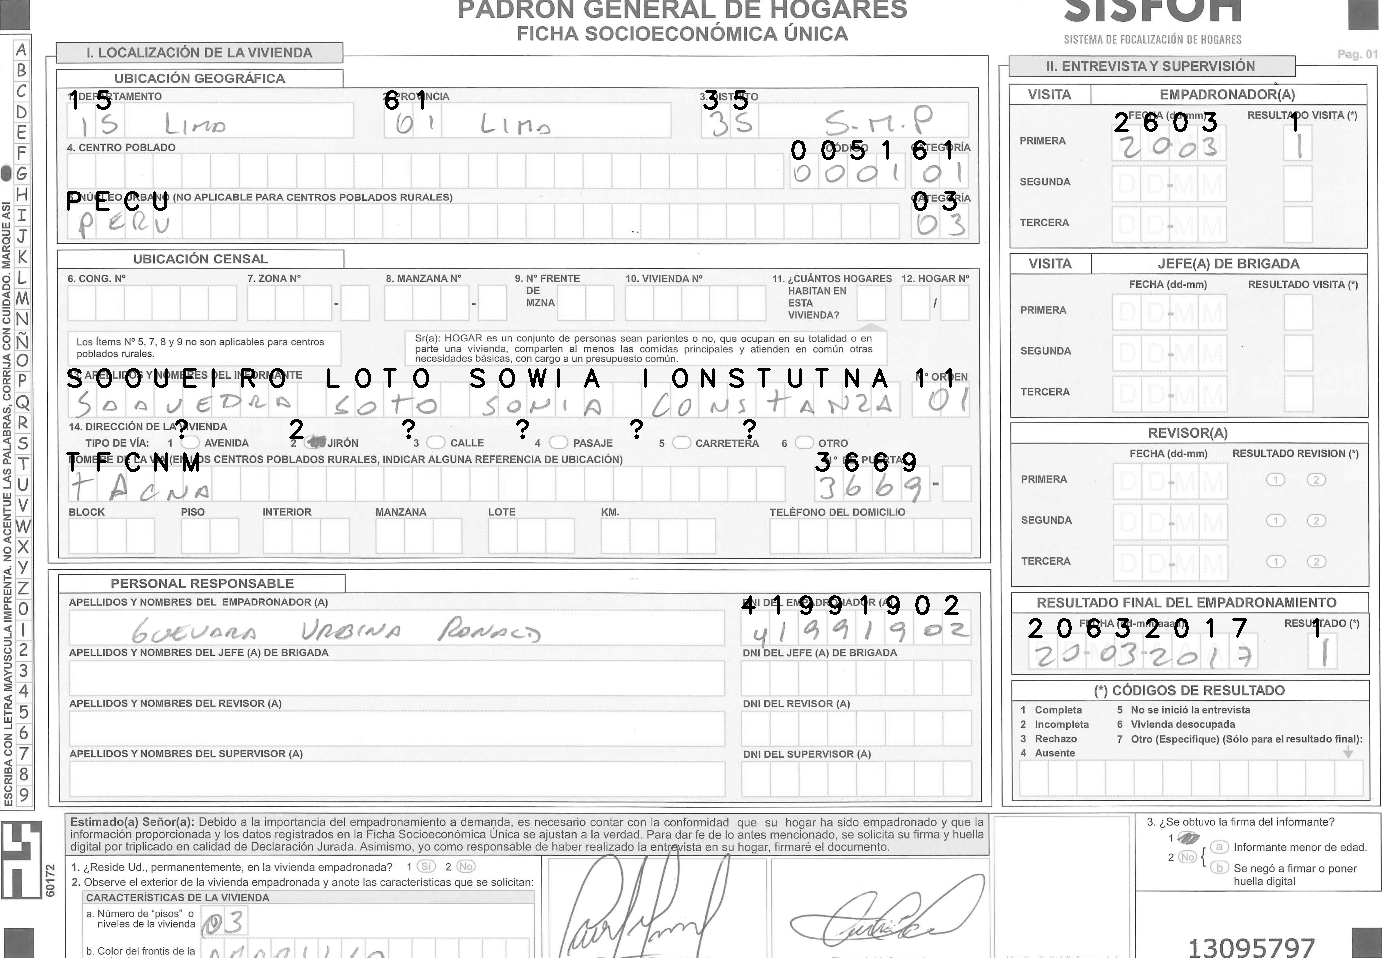 PADRÓN GENERAL DE HOGARES
FICHA SOCIOECONÓMICA ÚNICA
SISFOH
SISTEMA DE FOCALIZACIÓN DE HOGARES
Pag. 01
ESCRIBA CON LETRA MAYUSCULA IMPRENTA. NO ACENTUE LAS PALABRAS, CORRIJA CON CUIDADO. MARQUE ASI
A B C D E F G H I J K L M N Ñ O P Q R S T U V W X Y Z 0 1 2 3 4 5 6 7 8 9
I. LOCALIZACIÓN DE LA VIVIENDA
UBICACIÓN GEOGRÁFICA
15 61 35
1. DEPARTAMENTO 2. PROVINCIA 3. DISTRITO
15 LIMA 01 LIMA 35 S.M.P
4. CENTRO POBLADO CÓDIGO CATEGORÍA
0051 61
0001 01
PECU 03
5. NÚCLEO URBANO (NO APLICABLE PARA CENTROS POBLADOS RURALES) CATEGORÍA
PERU 03
UBICACIÓN CENSAL
6. CONG. Nº 7. ZONA Nº 8. MANZANA Nº 9. Nº FRENTE DE MZNA 10. VIVIENDA Nº 11. ¿CUÁNTOS HOGARES HABITAN EN ESTA VIVIENDA? 12. HOGAR Nº
- - /
Los Ítems Nº 5, 7, 8 y 9 no son aplicables para centros poblados rurales.
Sr(a): HOGAR es un conjunto de personas sean parientes o no, que ocupan en su totalidad o en
parte una vivienda, comparten al menos las comidas principales y atienden en común otras
necesidades básicas, con cargo a un presupuesto común.
SOQUEIRO LOTO SOWIA IONSTUTNA 11
13. APELLIDOS Y NOMBRES DEL INFORMANTE Nº ORDEN
SAAVEDRA SOTO SONIA CONSTANZA 01
14. DIRECCIÓN DE LA VIVIENDA
? 2 ? ? ? ?
TIPO DE VÍA: 1 AVENIDA 2 JIRÓN 3 CALLE 4 PASAJE 5 CARRETERA 6 OTRO
TFCNM 3669
NOMBRE DE LA VÍA (EN LOS CENTROS POBLADOS RURALES, INDICAR ALGUNA REFERENCIA DE UBICACIÓN) Nº DE PUERTA
TACNA 3669-
BLOCK PISO INTERIOR MANZANA LOTE KM. TELÉFONO DEL DOMICILIO
PERSONAL RESPONSABLE
41991902
APELLIDOS Y NOMBRES DEL EMPADRONADOR (A) DNI DEL EMPADRONADOR (A)
GUEVARA URBINA RONALD 41991902
APELLIDOS Y NOMBRES DEL JEFE (A) DE BRIGADA DNI DEL JEFE (A) DE BRIGADA
APELLIDOS Y NOMBRES DEL REVISOR (A) DNI DEL REVISOR (A)
APELLIDOS Y NOMBRES DEL SUPERVISOR (A) DNI DEL SUPERVISOR (A)
II. ENTREVISTA Y SUPERVISIÓN
VISITA EMPADRONADOR(A)
FECHA (dd-mm) RESULTADO VISITA (*)
2603 1
PRIMERA 2003 1
SEGUNDA DD-MM
TERCERA DD-MM
VISITA JEFE(A) DE BRIGADA
FECHA (dd-mm) RESULTADO VISITA (*)
PRIMERA DD-MM
SEGUNDA DD-MM
TERCERA DD-MM
REVISOR(A)
FECHA (dd-mm) RESULTADO REVISION (*)
PRIMERA DD-MM 1 2
SEGUNDA DD-MM 1 2
TERCERA DD-MM 1 2
RESULTADO FINAL DEL EMPADRONAMIENTO
20632017 1
FECHA (dd-mm-aaaa) RESULTADO (*)
20-03-2017 1
(*) CÓDIGOS DE RESULTADO
1 Completa 5 No se inició la entrevista
2 Incompleta 6 Vivienda desocupada
3 Rechazo 7 Otro (Especifique) (Sólo para el resultado final):
4 Ausente
60172
Estimado(a) Señor(a): Debido a la importancia del empadronamiento a demanda, es necesario contar con la conformidad que su hogar ha sido empadronado y que la
información proporcionada y los datos registrados en la Ficha Socioeconómica Única se ajustan a la verdad. Para dar fe de lo antes mencionado, se solicita su firma y huella
digital por triplicado en calidad de Declaración Jurada. Asimismo, yo como responsable de haber realizado la entrevista en su hogar, firmaré el documento.
1. ¿Reside Ud., permanentemente, en la vivienda empadronada? 1 Sí 2 No
2. Observe el exterior de la vivienda empadronada y anote las características que se solicitan:
CARACTERÍSTICAS DE LA VIVIENDA
a. Número de "pisos" o
niveles de la vivienda 03
b. Color del frontis de la
3. ¿Se obtuvo la firma del informante?
1
2 No a Informante menor de edad.
b Se negó a firmar o poner
huella digital
13095797